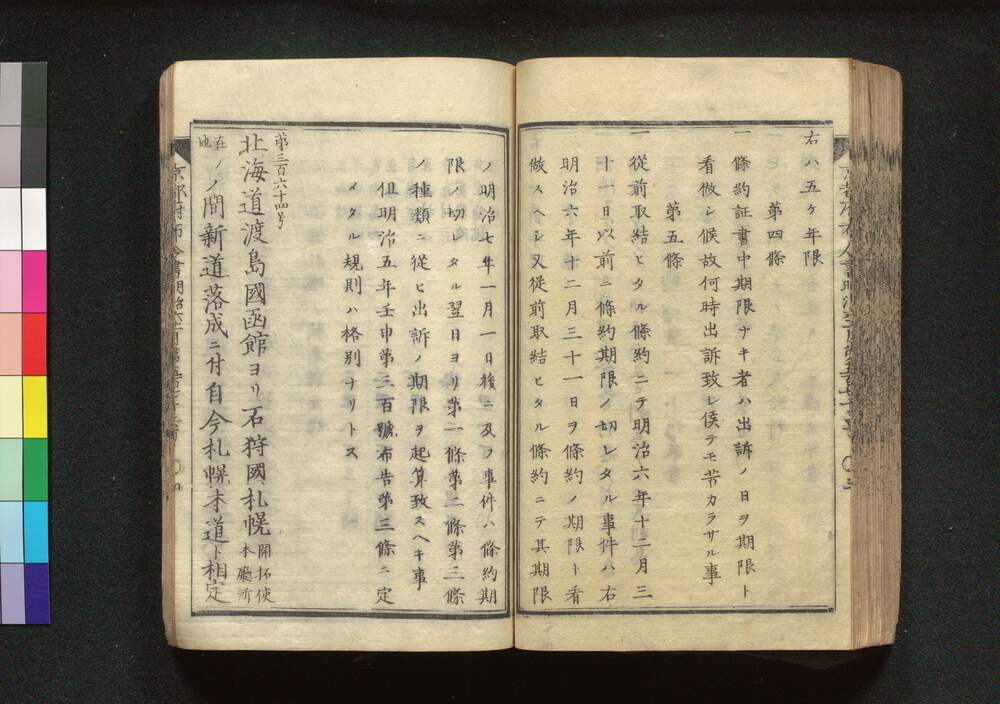 右ハ五ケ年限
第四條
一 條約証書中期限ナキ者ハ出訴ノ日ヲ期限ト
看做シ候故何時出訴致シ候テモ苦カラサル事
第五條
一 從前取結ヒタル條約ニテ明治六年十二月三
十一日以前ニ條約期限ノ切レタル事件ハ右
明治六年十二月三十一日ヲ條約ノ期限ト看
做スヘシ又從前取結ヒタル條約ニテ其期限
ノ明治七年一月一日後ニ及フ事件ハ條約期
限ノ切レタル翌日ヨリ第一條第二條第三條
ノ種類ニ從ヒ出訴ノ期限ヲ起算致スヘキ事
但明治五年壬申第三百號布告第三條ニ定
メタル規則ハ格別ナリトス
第三百六十四号
北海道渡島國函館ヨリ石狩國札幌開拓使本廳所
在地ノ間新道落成ニ付自今札幌本道ト相定
京都府布令書明治六